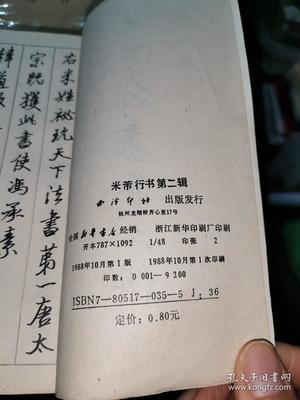 右米姓秘玩天下法書第一唐太
宗既獲此書使馮承素
米芾行书第二辑
西泠印社 出版发行
杭州龙翔桥齐心里17号
全国新华书店经销 浙江新华印刷厂印刷
开本787×1092 1/48 印张:2
1988年10月第1版 1988年10月第1次印刷
印数:0 001—9 200
ISBN7—80517—035—5 J:36
定价:0.80元
孔夫子旧书网